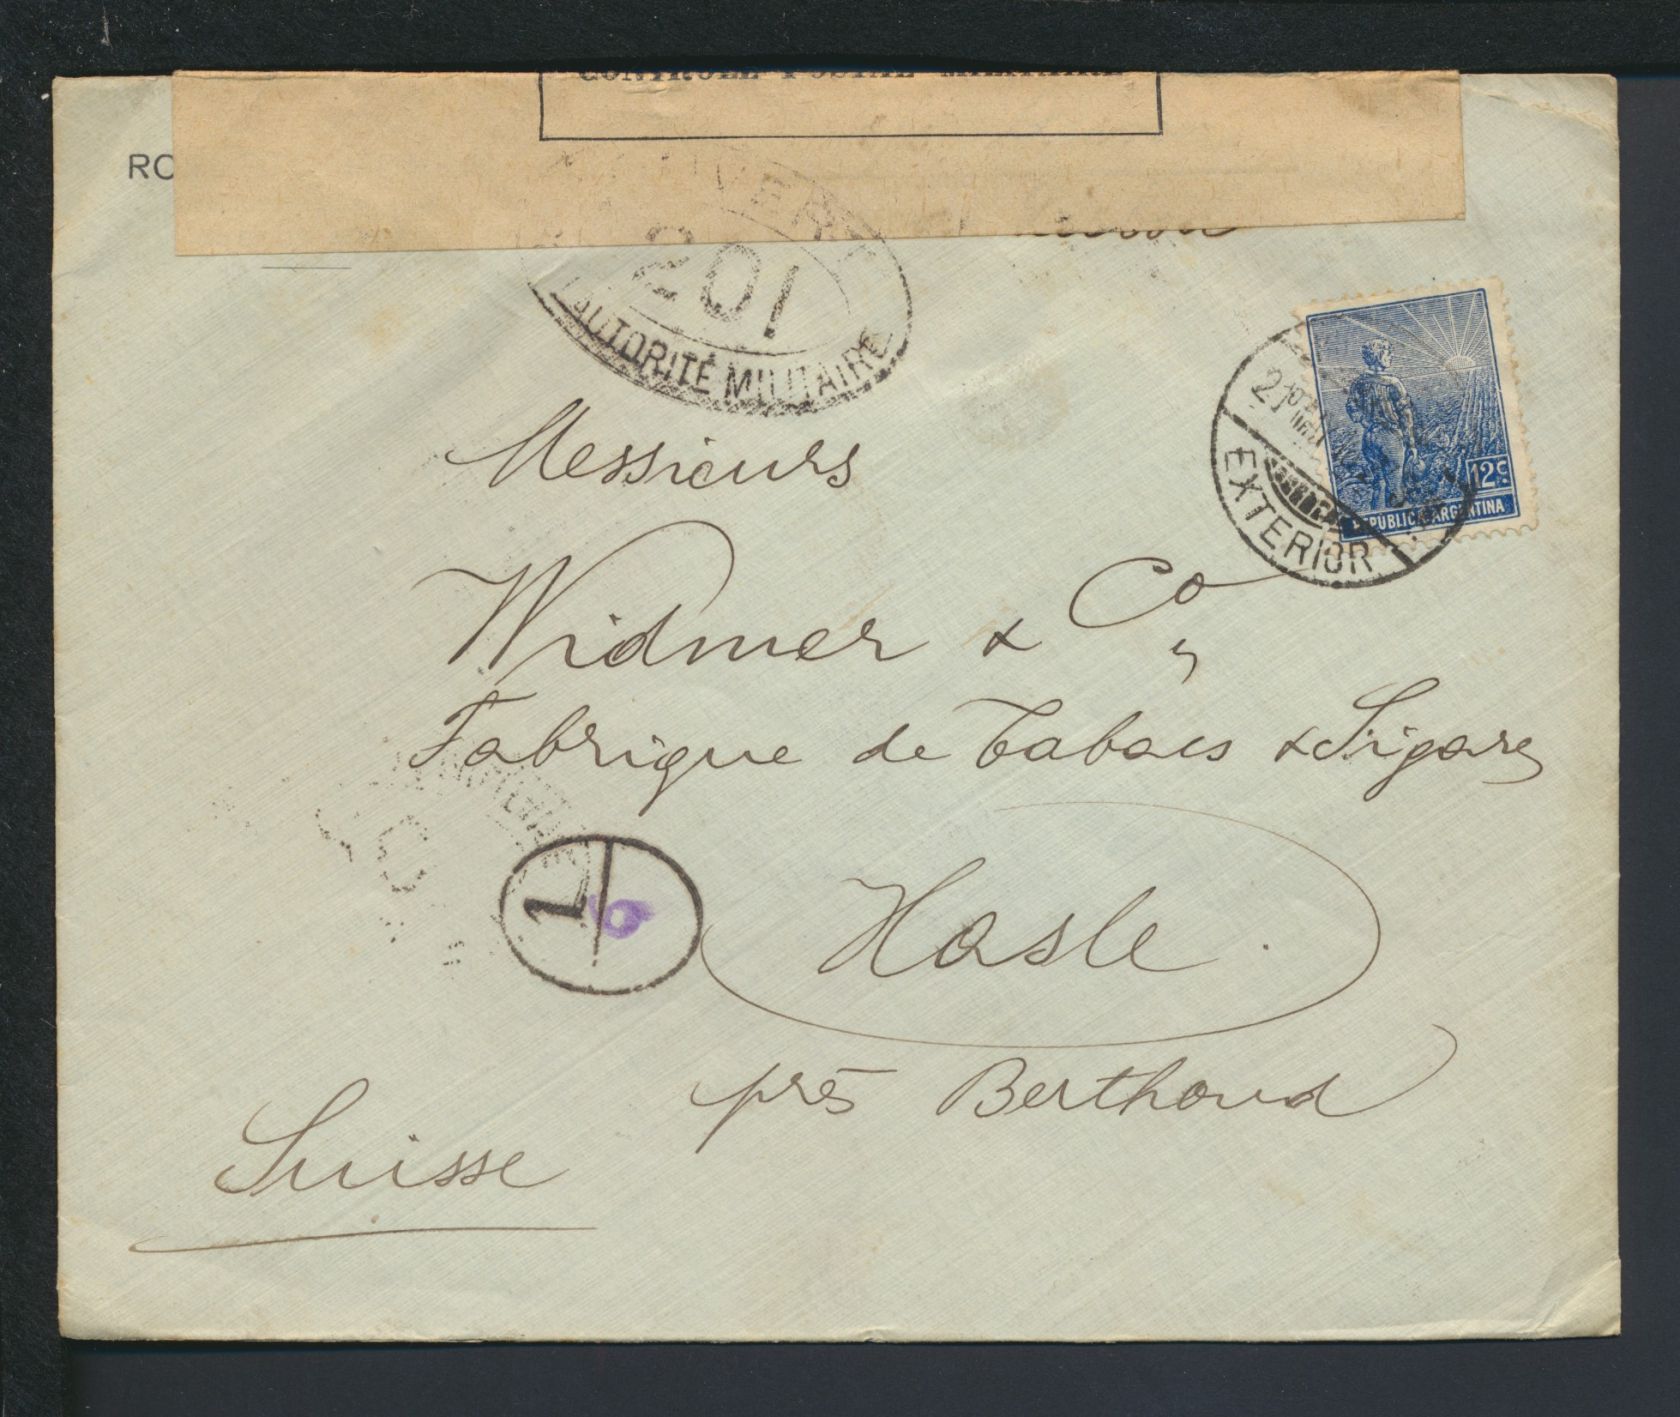 CONTROLE POSTAL MILITAIRE
RO
201
AUTORITÉ MILITAIRE
21
EXTERIOR
12c
REPUBLICA ARGENTINA
Messieurs
Widmer & Co,
Fabrique de Tabacs & Sigares
1
6
Hasle
près Berthoud
Suisse